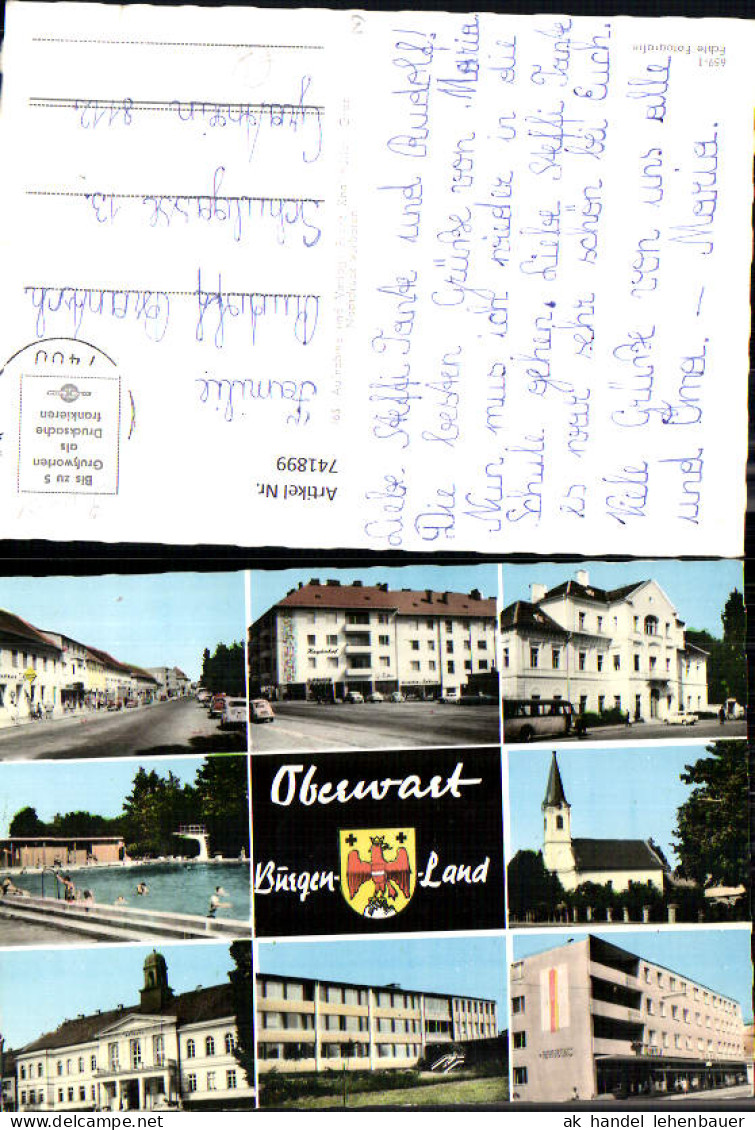 Liebe Steffi Tante und Rudolf!
Die besten Grüße von Maria.
Nun mus ich wieder in die
Schule gehen. Liebe Steffi Tante
is war sehr schön bei Euch.
Viele Grüße von uns alle
und Oma. – Maria.
659-1
Echte Fotografie
Bis zu 5
Grußworten
als
Drucksache
frankieren
7400
Familie
Rudolf
Schulgasse 13
Gratwein 8112
Artikel Nr.
741899
Oberwart
Burgen-Land
ak handel lehenbauer